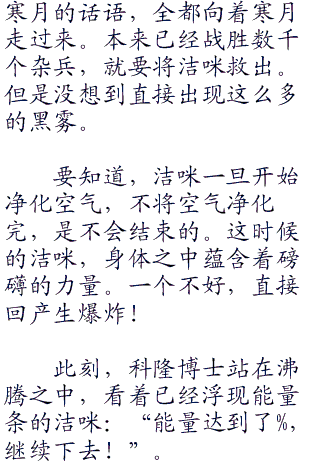 寒月的话语，全都向着寒月
走过来。本来已经战胜数千
个杂兵，就要将洁咪救出。
但是没想到直接出现这么多
的黑雾。
要知道，洁咪一旦开始
净化空气，不将空气净化
完，是不会结束的。这时候
的洁咪，身体之中蕴含着磅
礴的力量。一个不好，直接
回产生爆炸！
此刻，科隆博士站在沸
腾之中，看着已经浮现能量
条的洁咪：“能量达到了%，
继续下去！”。